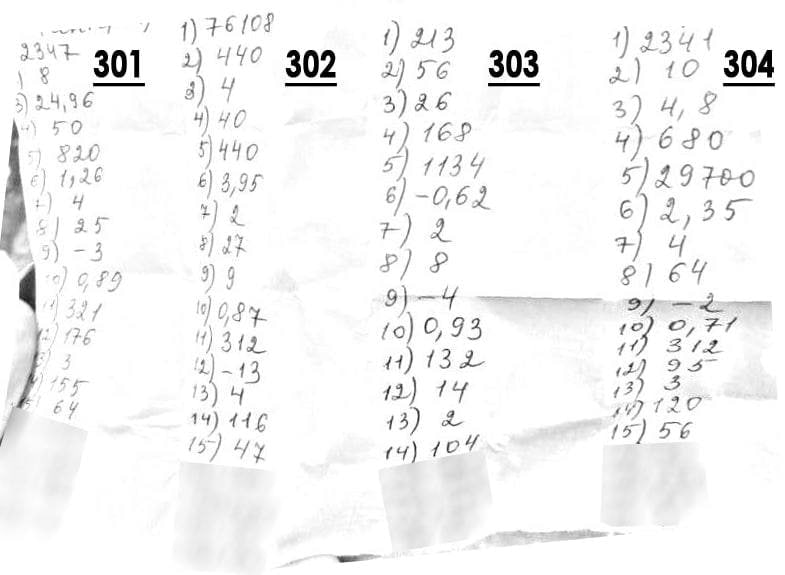 301
2347
) 8
3) 24,96
4) 50
5) 820
6) 1,26
7) 4
8) 25
9) -3
10) 0,89
11) 321
12) 176
3) 3
4) 155
15) 64
302
1) 76108
2) 440
3) 4
4) 40
5) 440
6) 3,95
7) 2
8) 27
9) 9
10) 0,87
11) 312
12) -13
13) 4
14) 116
15) 47
303
1) 213
2) 56
3) 26
4) 168
5) 1134
6) -0,62
7) 2
8) 8
9) -4
10) 0,93
11) 132
12) 14
13) 2
14) 104
304
1) 2341
2) 10
3) 4,8
4) 680
5) 29700
6) 2,35
7) 4
8) 64
9) -2
10) 0,71
11) 312
12) 95
13) 3
14) 120
15) 56